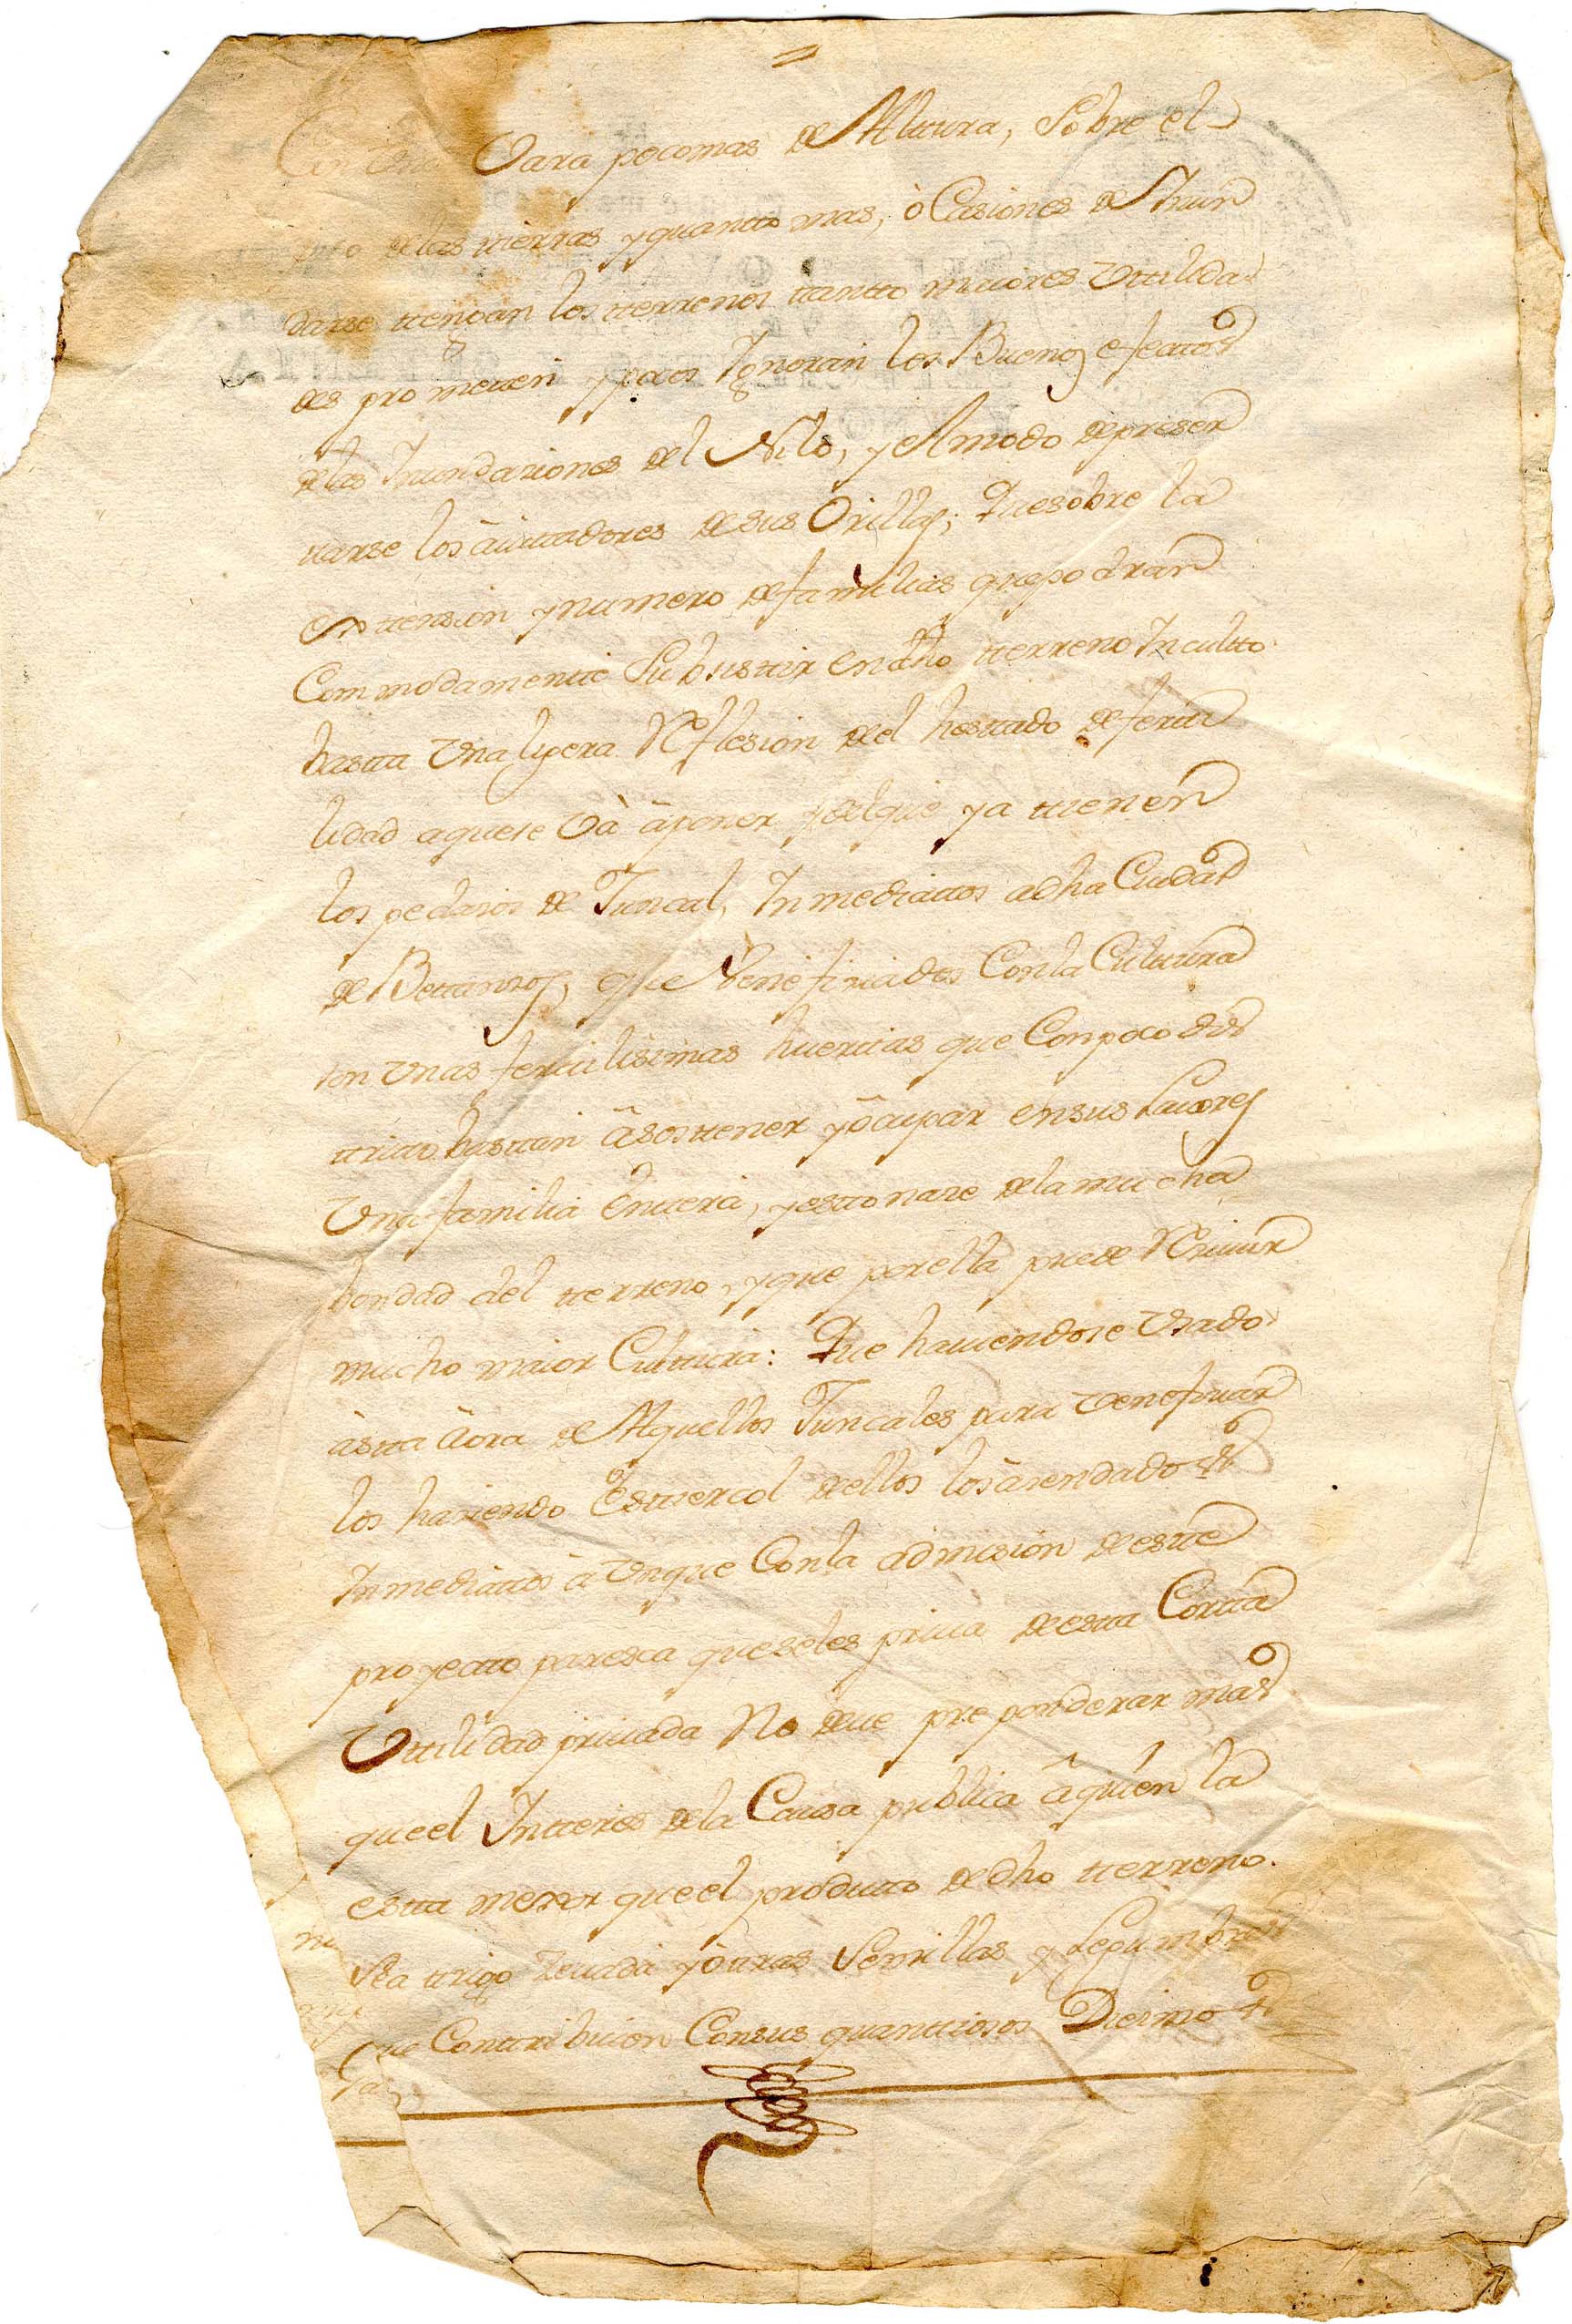 Vara poco mas de Altura, Sobre el
de las tierras y quanto mas, ò Casiones de Ynun
darse tengan los terrenos tanto maiores Utilida
des prometen y pocos Ygnoran los Buenos efectos
de las Ynundaziones del Nilo, y el modo de preser
varse los àuitadores de sus Orillas; Que sobre la
Extension y numero de familias que podrán
Commodamente Subsistir en dho terreno Ynculto
basta Una lijera Reflesion del hestado de ferti
lidad a que se Và àponer y del que ya tienen
los pedazos de Juncal, Ynmediatos a dha Ciudad
de Bettanzos, que Veneficiados Con la Cultura
son Unas fertilisimas huertas que Con poco dis
trito bastan àsostener y òcupar en sus Lauores
Una familia Entera, y esto naze de la mucha
bondad del terreno, y que por ella puede Reciuir
mucho maior Cultura: Que hauiendose Usado
àsta àora de Aquellos Juncales para Veneficiar
los haziendo Estiercol dellos los àzendados
Ynmediatos à Unque Con la admision de este
proyecto paresca que se les priua de esta Corta
Utilidad priuada No deue preponderar mas
que el Ynteres de la Causa publica à quien la
esta mejor que el produzto de dho terreno
sea trigo zeuada y òtras Semillas y Legumbres
que Contribuien Con sus quantiosos Diezmos